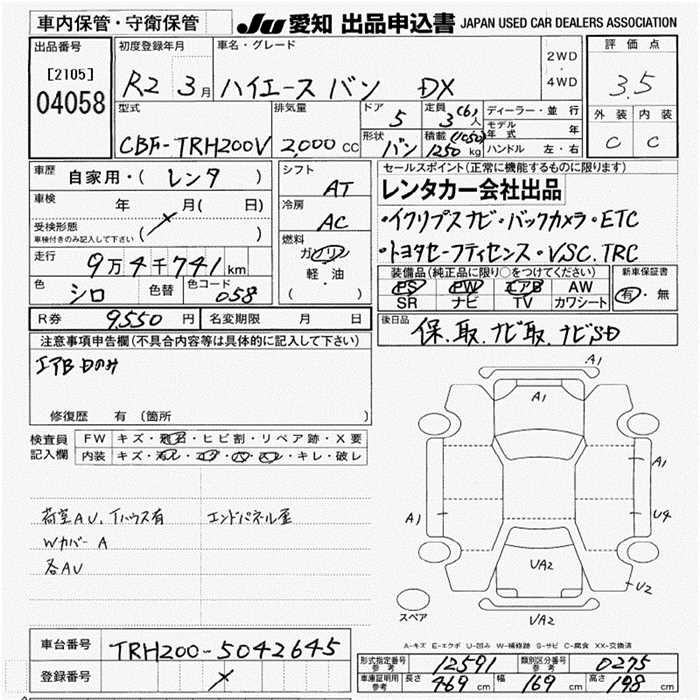 車内保管・守衛保管 JU 愛知 出品申込書 JAPAN USED CAR DEALERS ASSOCIATION
出品番号 初度登録年月 車名・グレード 評価点
[2105] 04058 R2 3月 ハイエース バン DX 2WD・4WD 3.5
型式 排気量 ドア 5 定員 3(6)人 ディーラー・並行 外装 内装
モデル年式 年
CBF-TRH200V 2,000cc 形状 バン 積載 (1050) 1250kg ハンドル 左・右 C C
車歴 自家用・(レンタ) シフト AT セールスポイント(正常に機能するものに限ります)
車検 年 月(日) 冷房 AC レンタカー会社出品
受検形態 車検付きのみ記入して下さい ( ) ・イクリプスナビ・バックカメラ・ETC
走行 9万4千741km 燃料 ガソリン 軽・油 ( ) ・トヨタセーフティセンス・VSC.TRC
色 シロ 色替 色コード 058 装備品(純正品に限り○をつけてください) 新車保証書
PS PW エアB AW 有・無
SR ナビ TV カワシート
R券 9,550円 名変期限 月 日 後日品 保.取.ナビ取.ナビSD
注意事項申告欄(不具合内容等は具体的に記入して下さい)
エアB Dのみ
修復歴 有(箇所 )
検査員記入欄 FW キズ・飛石・ヒビ割・リペア跡・X要
内装 キズ・汚レ・コゲ・穴・スレ・キレ・破レ
荷室AU、Tハウス有 エンドパネル歪
Wカバー A
各AU
A1
A1
A1
A1 U4
UA2
U2
スペア UA2
A-キズ E-エクボ U-凹み W-補修跡 S-サビ C-腐食 XX-交換済
車台番号 TRH200-5042645
登録番号 ×
形式指定番号 参考 12591 類別区分番号 参考 0275
車庫証明用参考 長さ 469cm 幅 169cm 高さ 198cm